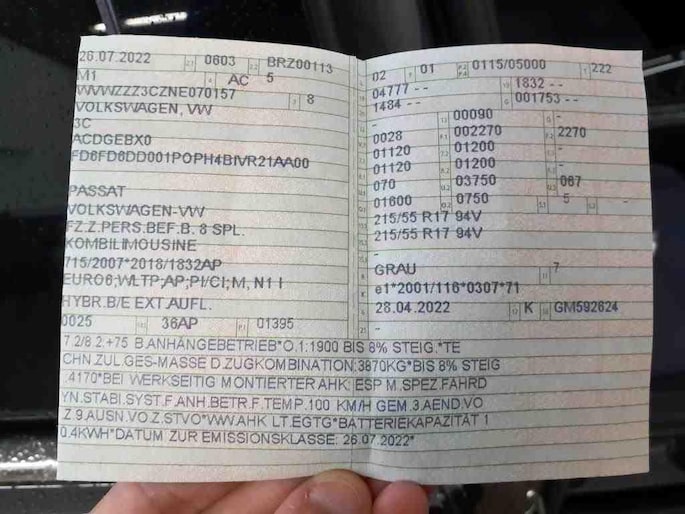 26.07.2022 0603 BRZ00113
M1 AC 5
WVWZZZ3CZNE070157 8
VOLKSWAGEN, VW
3C
ACDGEBX0
FD6FD6DD001POPH4BIVR21AA00
PASSAT
VOLKSWAGEN-VW
FZ.Z.PERS.BEF.B. 8 SPL.
KOMBILIMOUSINE
715/2007*2018/1832AP
EURO6;WLTP;AP;PI/CI; M, N1 I
HYBR.B/E EXT.AUFL.
0025 36AP 01395
02 01 0115/05000 222
04777 -- 1832 --
1484 -- 001753 --
- 00090 -
0028 002270 2270
01120 01200 -
01120 01200 -
070 03750 067
01600 0750 5 -
215/55 R17 94V
215/55 R17 94V
-
GRAU 7
e1*2001/116*0307*71
28.04.2022 K GM592624
-
7.2/8.2.+75 B.ANHÄNGEBETRIEB*O.1:1900 BIS 8% STEIG.*TE
CHN.ZUL.GES-MASSE D.ZUGKOMBINATION:3870KG*BIS 8% STEIG
.4170*BEI WERKSEITIG MONTIERTER AHK: ESP M.SPEZ.FAHRD
YN.STABI.SYST.F.ANH.BETR.F.TEMP.100 KM/H GEM 3.AEND.VO
Z 9.AUSN.VO.Z.STVO*VW.AHK LT.EGTG*BATTERIEKAPAZITÄT 1
0.4KWH*DATUM ZUR EMISSIONSKLASSE: 26.07.2022*